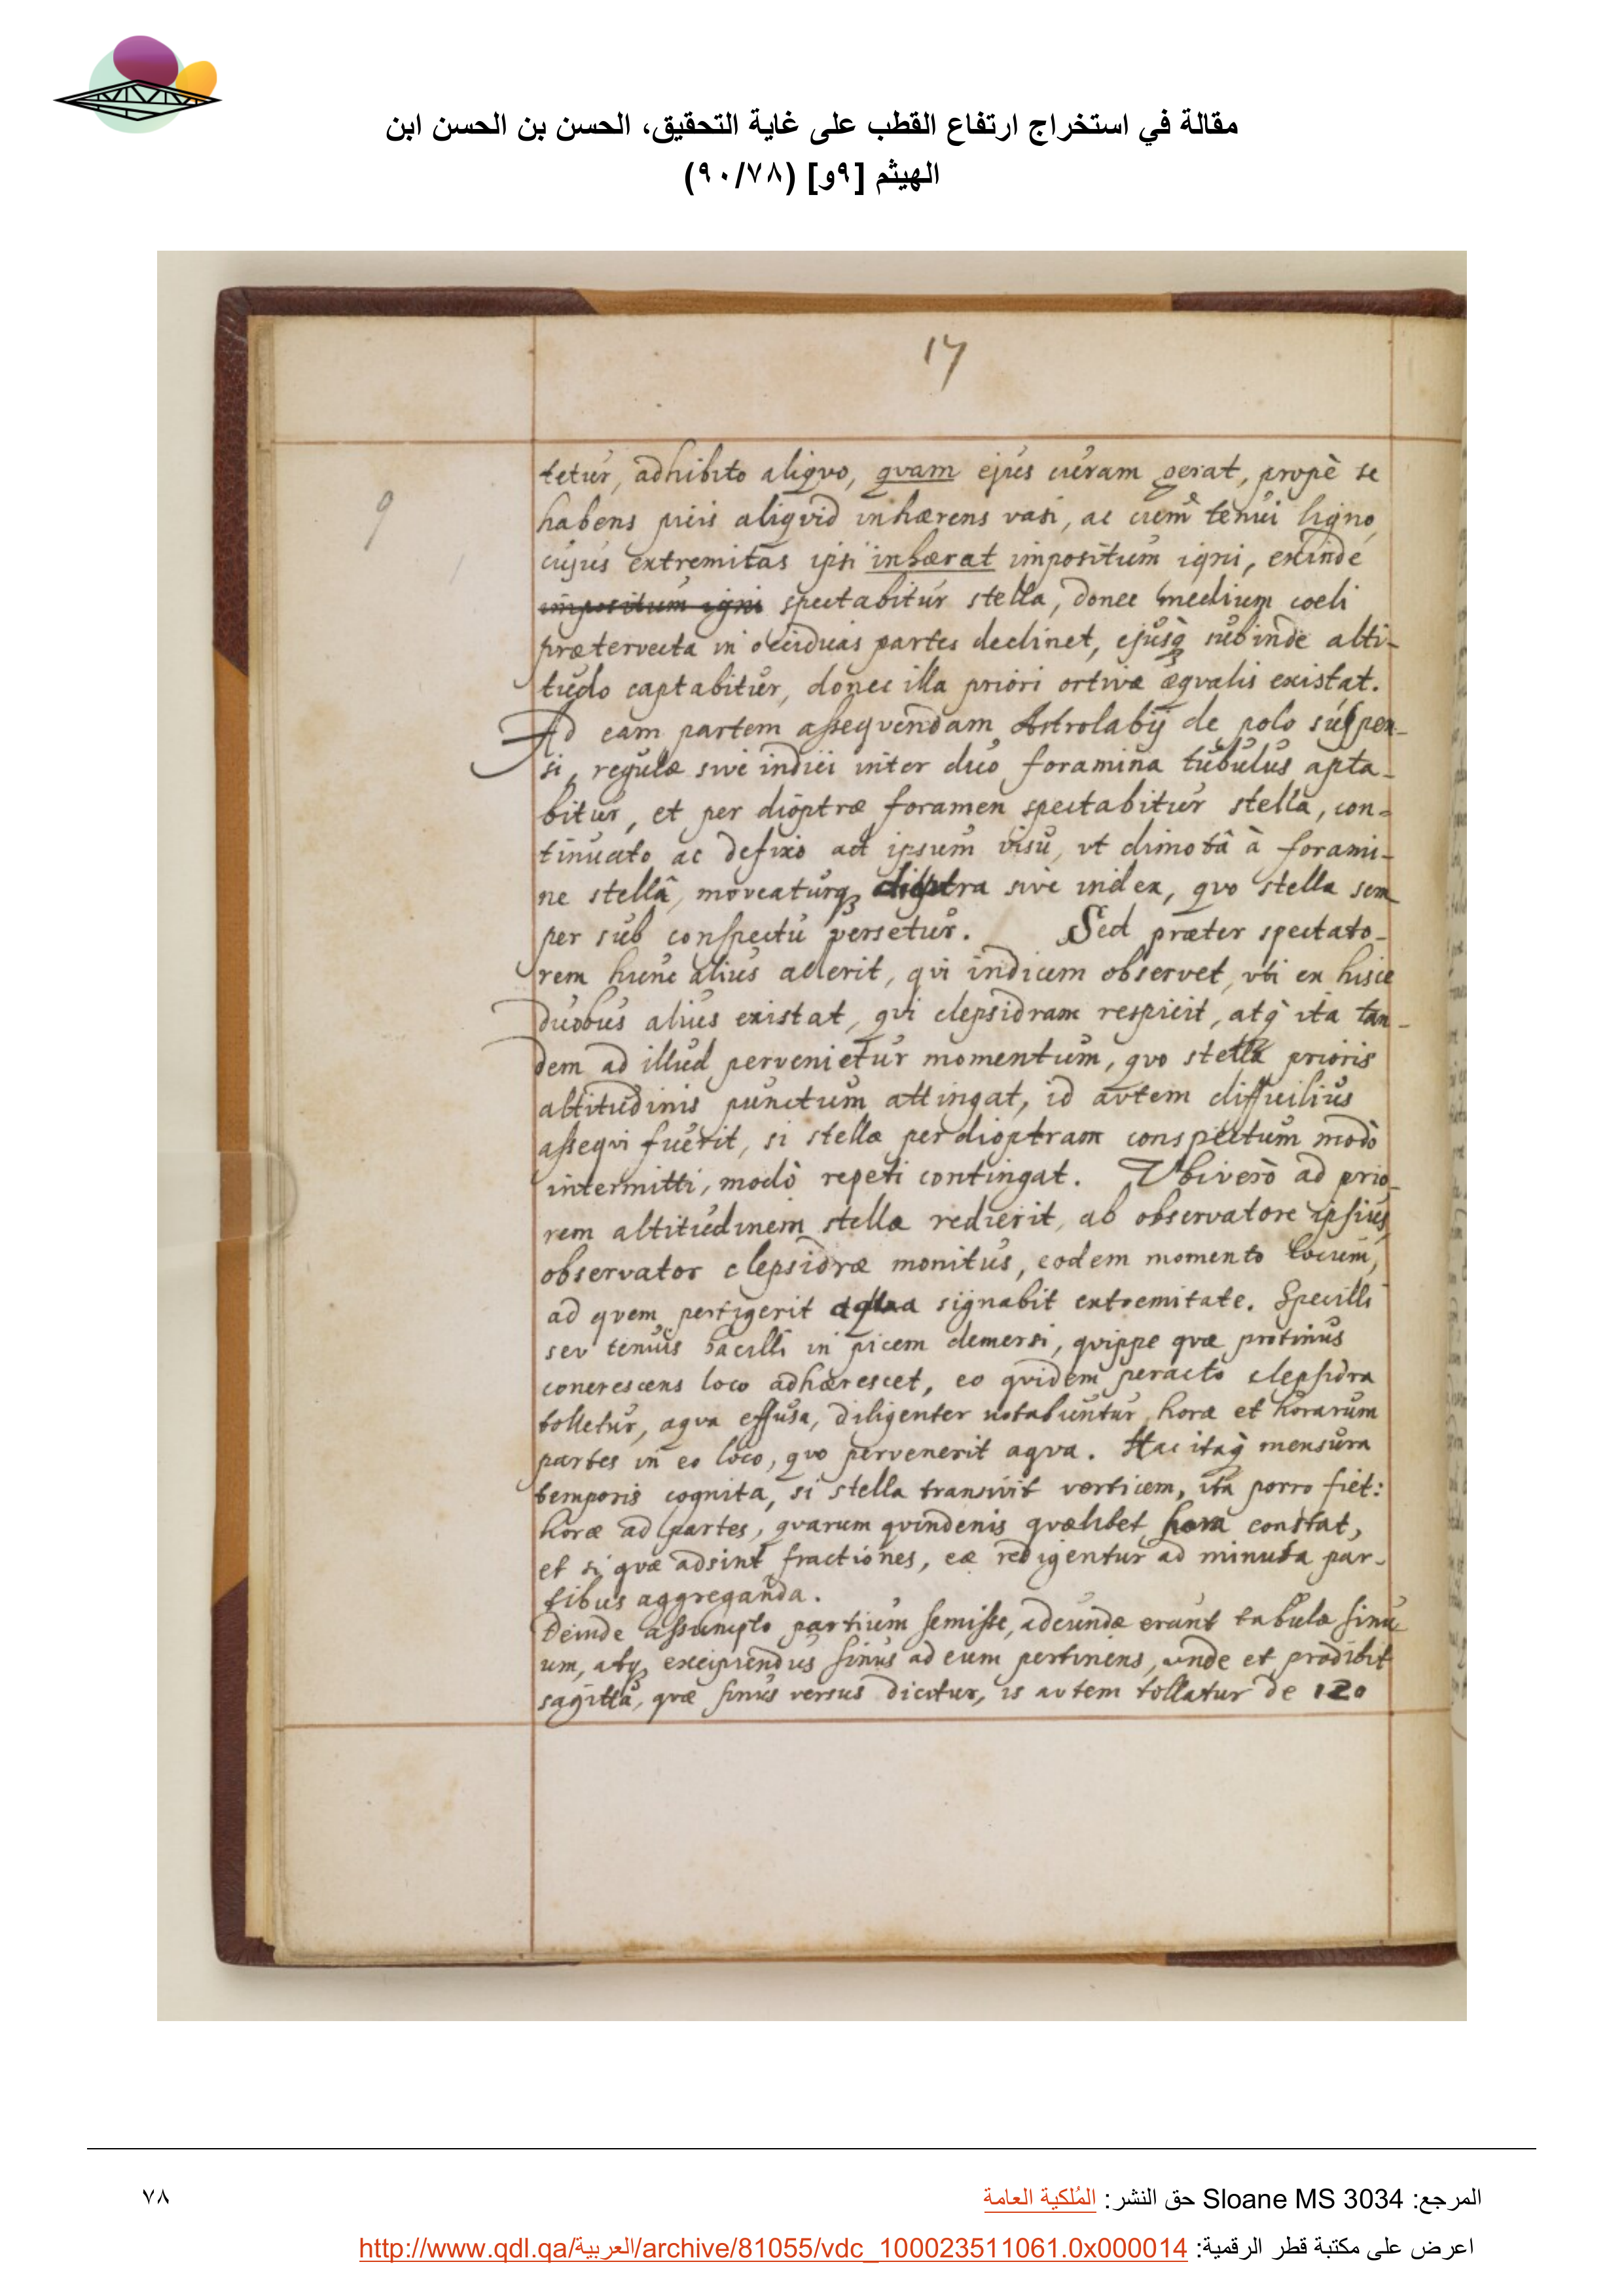 مقالة في استخراج ارتفاع القطب على غاية التحقيق، الحسن بن الحسن ابن
الهيثم [٩و] (٩٠/٧٨)
17
9
tetur, adhibito aliqvo, qvam ejus curam gerat, propè se
habens picis aliqvid inhærens vasi, ac cum tenui ligno,
cujus extremitas ipsi inhærat impositum igni, exinde
impositum igni spectabitur stella, donec medium coeli
prætervecta in occiduas partes declinet, ejusq; subinde alti-
tudo captabitur, donec illa priori ortivæ æqvalis existat.
Ad eam partem assequendam Astrolabij de polo suspen-
si, regulæ sive indici inter duo foramina tubulus apta-
bitur, et per dioptræ foramen spectabitur stella, con-
tinuato ac defixo ad ipsum visu, vt dimotâ à forami-
ne stellâ, moveaturq; dioptra sive index, qvo stella sem
per sub conspectu versetur. Sed præter spectato-
rem hunc alius aderit, qvi indicem observet, vti ex hisce
duobus alius existat, qvi clepsidram respicit, atq̀ ita tan-
dem ad illud pervenietur momentum, qvo stella prioris
altitudinis punctum attingat, id avtem difficilius
assequi fuerit, si stellæ per dioptram conspectum modò
intermitti, modò repeti contingat. Vbi verò ad prio-
rem altitudinem stella redierit, ab observatore ipsius
observator clepsidræ monitus, eodem momento locum,
ad qvem pertigerit aqva signabit extremitate. Specilli
sev tenuis bacilli in picem demersi, qvippe qvæ protinus
concrescens loco adhærescet, eo qvidem peracto clepsidra
tolletur, aqva effusa, diligenter notabuntur horæ et horarum
partes in eo loco, qvo pervenerit aqva. Hac itaq̀ mensura
temporis cognita, si stella transivit verticem, ita porro fiet:
horæ ad partes, qvarum qvindenis qvælibet hora constat,
et si qvæ adsint fractiones, eæ redigentur ad minuta par-
tibus aggreganda.
Deinde assumpto partium semisse, adeundæ erunt tabulæ sinu
um, atq; excipiendus sinus ad eum pertinens, vnde et prodibit
sagitta, qvæ sinus versus dicitur, is avtem tollatur de 120
المرجع: Sloane MS 3034 حق النشر: المُلكية العامة
٧٨
اعرض على مكتبة قطر الرقمية: http://www.qdl.qa/العربية/archive/81055/vdc_100023511061.0x000014